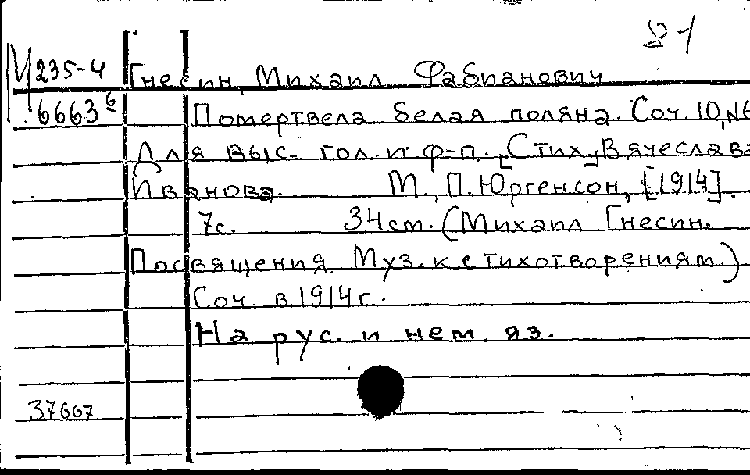 М 235-4 Гнесин, Михаил Фабианович
6663б Помертвела белая поляна. Соч. 10, №6
Для выс. гол. и ф-п. [Стих.] Вячеслава
Иванова. М., П. Юргенсон, [1914].
7с. 34см. (Михаил Гнесин.
Посвящения. Муз. к стихотворениям.)
Соч. в 1914г.
На рус. и нем. яз.
37667